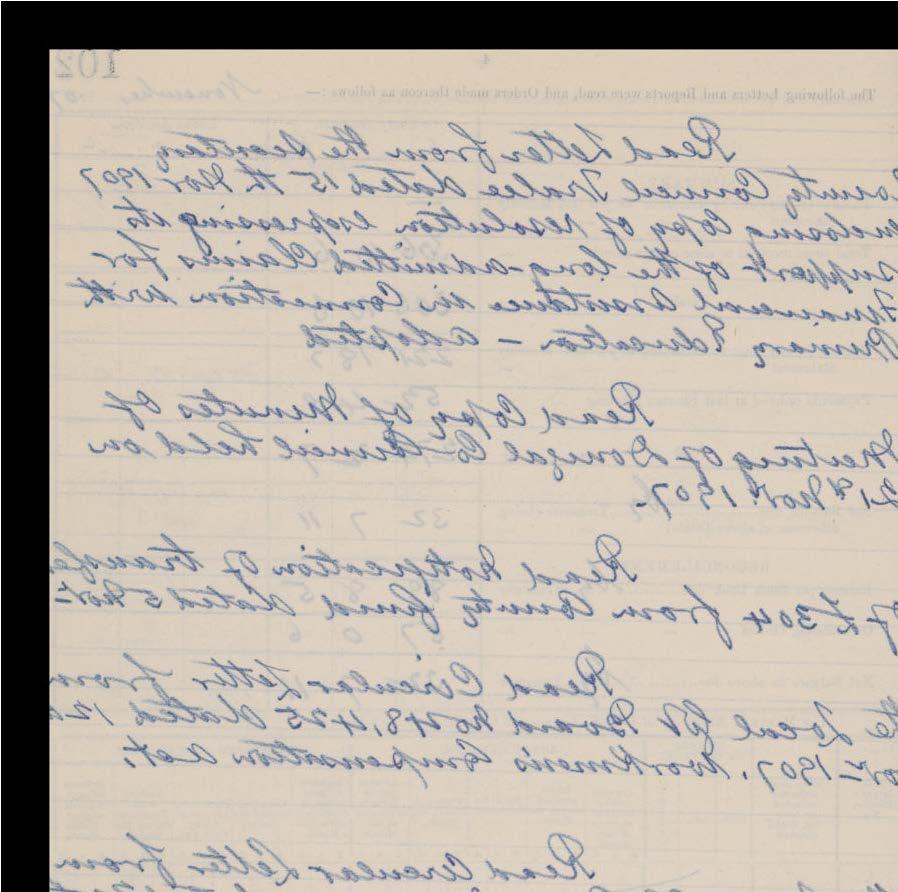 102
November 07
The following Letters and Reports were read, and Orders made thereon as follows :—
Read Letter from the Secretary
County Council Tralee dated 15th Nov 1907
enclosing Copy of resolution expressing its
support of the long-admitted Claims for
Financial Assistance in Connection with
Primary Education - adopted
Read Copy of Minutes of
Meeting of Donegal Co Council held on
21st Nov. 1907-
Read notification of transfer
of £304 from County fund dated 5 Nov
Read Circular Letter from
the Local Gt Board No 48,425 dated 12th
Nov 1907. Workmen's Compensation Act.
Read Circular Letter from